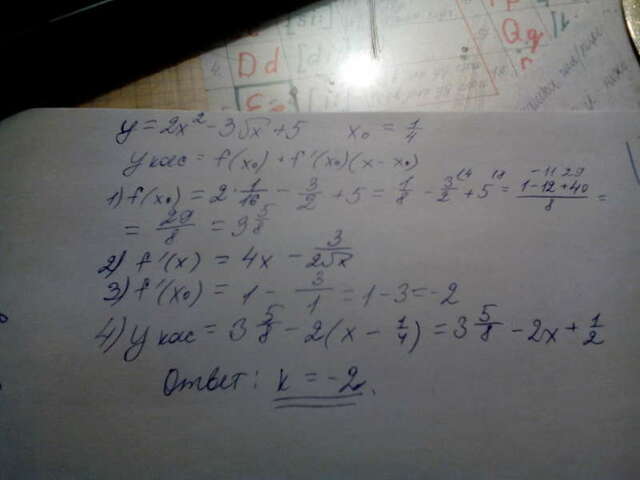 Dd [d]
Qq
y = 2x² - 3√x + 5 x₀ = 1/4
y кас = f(x₀) + f'(x₀)(x - x₀)
1) f(x₀) = 2·1/16 - 3/2 + 5 = 1/8 - 3/2 + 5 = (1-12+40)/8 =
= 29/8 = 3 5/8
2) f'(x) = 4x - 3/(2√x)
3) f'(x₀) = 1 - 3/1 = 1 - 3 = -2
4) y кас = 3 5/8 - 2(x - 1/4) = 3 5/8 - 2x + 1/2
Ответ: k = -2.